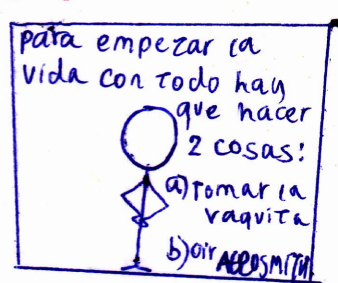 para empezar la
vida con todo hay
que hacer
2 cosas:
a) tomar la
vaquita
b) oir AEROSMITH